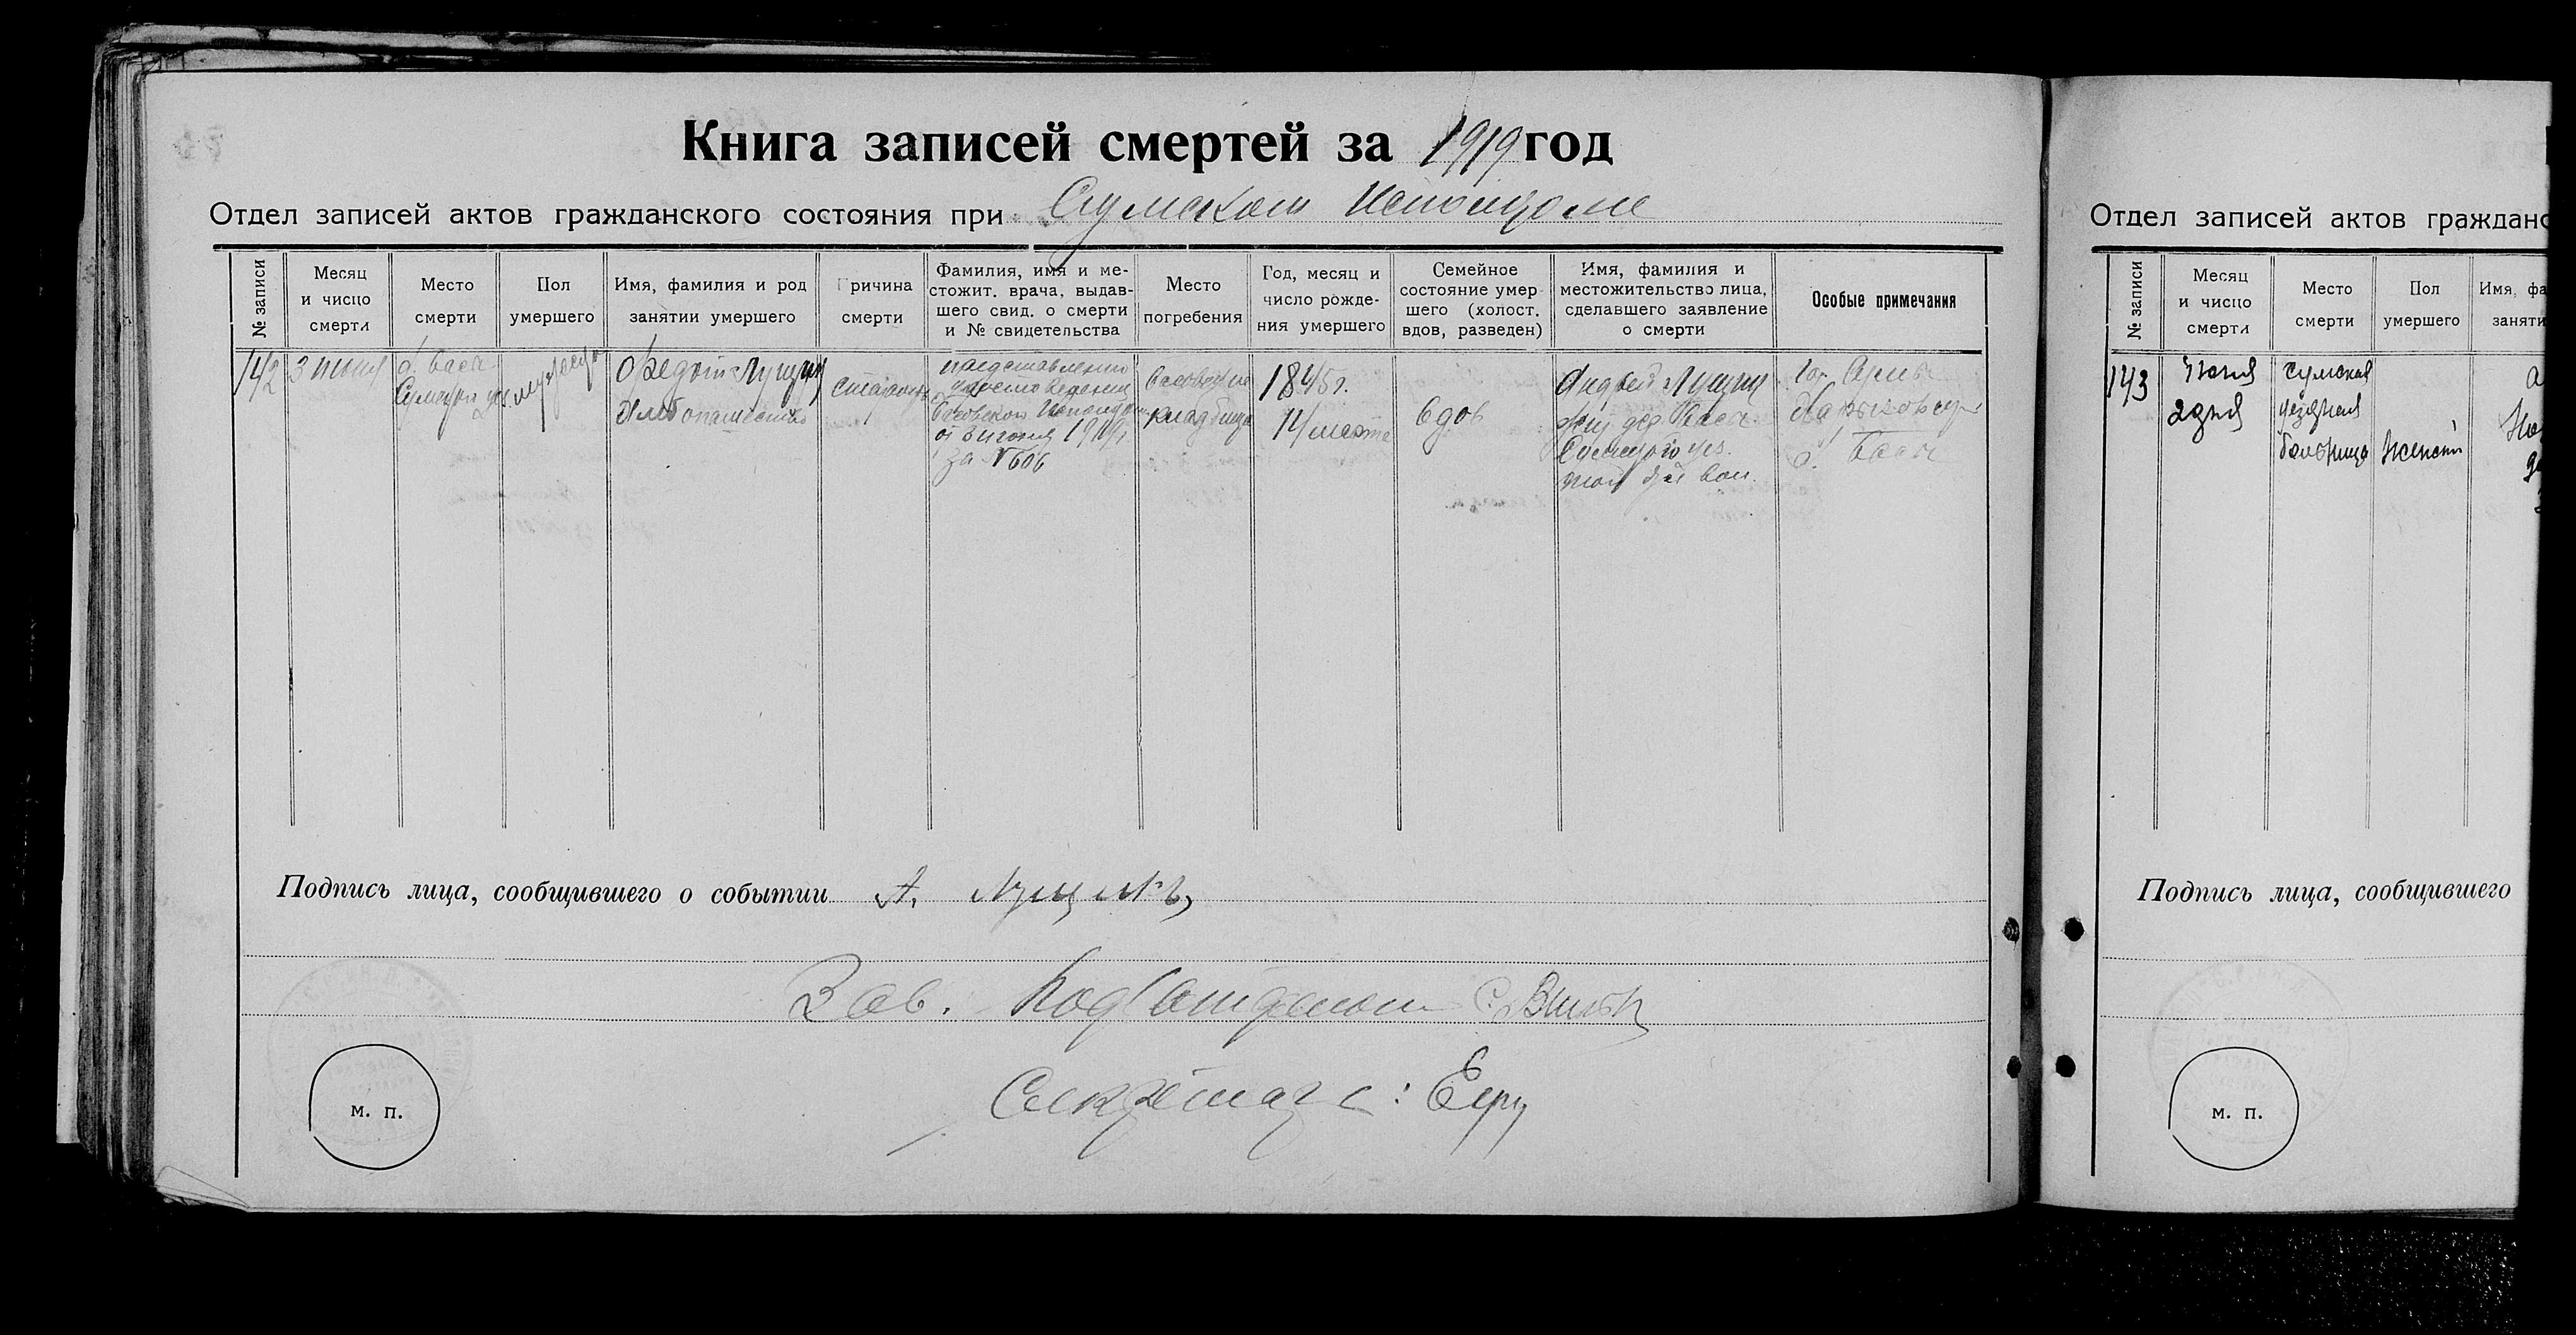 Книга записей смертей за 1919 год
Отдел записей актов гражданского состояния при Сумском Исполкоме
№ записи
Месяц
и число
смерти
Место
смерти
Пол
умершего
Имя, фамилия и род
занятии умершего
Причина
смерти
Фамилия, имя и ме-
стожит. врача, выдав-
шего свид. о смерти
и № свидетельства
Место
погребения
Год, месяц и
число рожде-
ния умершего
Семейное
состояние умер
шего (холост.
вдов, разведен)
Имя, фамилия и
местожительство лица,
сделавшего заявление
о смерти
Особые примечания
142
3 июня
д. Басы
мужеск
Федот Лущик
Хлебопашество
Старость
представлено
удостоверение
Басовского
от 3 июня 1919 г.
за № 606
Басовское
кладбище
1845 г.
14 марта
вдов
Андрей Лущик
жит. дер. Басы
Сумского уез.
той же вол.
гор. Сумы
д. Басы
Подпись лица, сообщившего о событии А. Лущикъ
Зав. Подотделом
Секретарь:
м. п.
Отдел записей актов гражданс
№ записи
Месяц
и число
смерти
Место
смерти
Пол
умершего
Имя, фа
заняти
143
Июня
2 дня
Сумская
уездная
больница
Женский
Подпись лица, сообщившего
м. п.